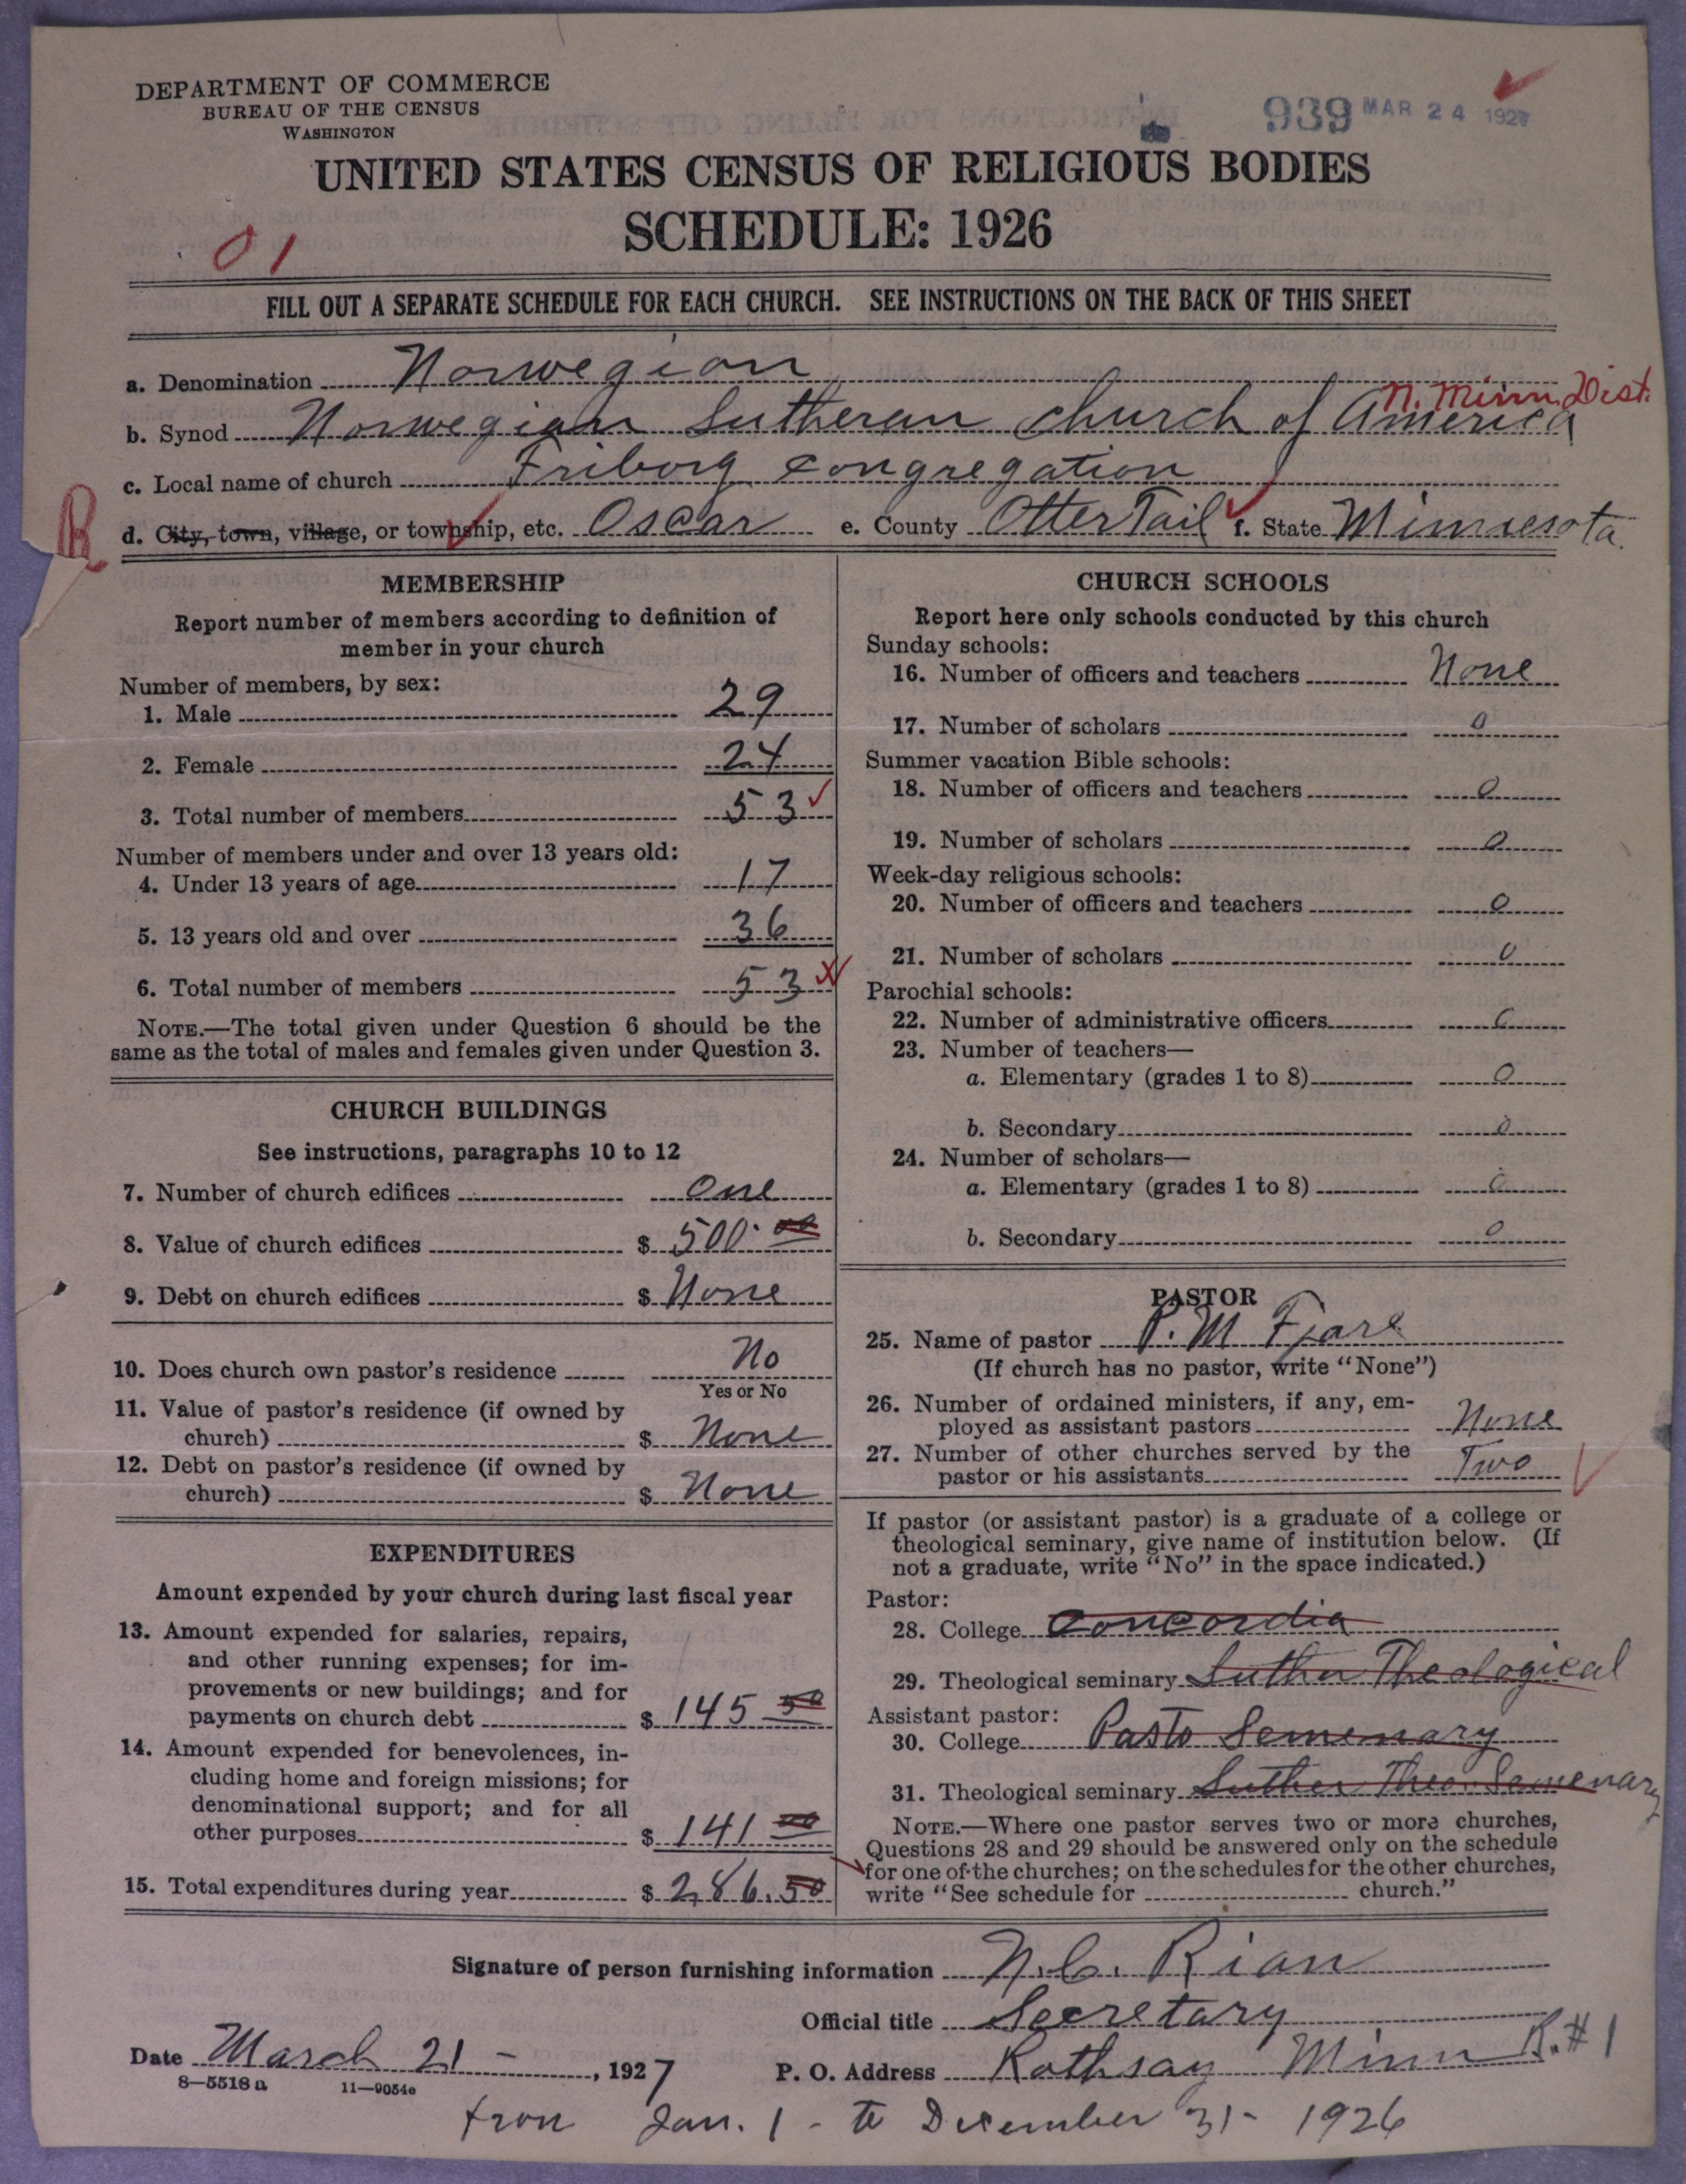 DEPARTMENT OF COMMERCE
BUREAU OF THE CENSUS
WASHINGTON
939 MAR 24 1927
UNITED STATES CENSUS OF RELIGIOUS BODIES
SCHEDULE: 1926
01
FILL OUT A SEPARATE SCHEDULE FOR EACH CHURCH. SEE INSTRUCTIONS ON THE BACK OF THIS SHEET
a. Denomination Norwegian
N. Minn. Dist.
b. Synod Norwegian Lutheran church of America
c. Local name of church Friborg congregation
R
d. City, town, village, or township, etc. Oscar e. County Otter Tail f. State Minnesota.
MEMBERSHIP
Report number of members according to definition of
member in your church
Number of members, by sex:
1. Male 29
2. Female 24
3. Total number of members 53
Number of members under and over 13 years old:
4. Under 13 years of age 17
5. 13 years old and over 36
6. Total number of members 53
NOTE.—The total given under Question 6 should be the
same as the total of males and females given under Question 3.
CHURCH BUILDINGS
See instructions, paragraphs 10 to 12
7. Number of church edifices One
8. Value of church edifices $ 500.00
9. Debt on church edifices $ None
10. Does church own pastor's residence No
Yes or No
11. Value of pastor's residence (if owned by
church) $ None
12. Debt on pastor's residence (if owned by
church) $ None
EXPENDITURES
Amount expended by your church during last fiscal year
13. Amount expended for salaries, repairs,
and other running expenses; for im-
provements or new buildings; and for
payments on church debt $ 145 50
14. Amount expended for benevolences, in-
cluding home and foreign missions; for
denominational support; and for all
other purposes $ 141 00
15. Total expenditures during year $ 286.50
CHURCH SCHOOLS
Report here only schools conducted by this church
Sunday schools:
16. Number of officers and teachers None
17. Number of scholars 0
Summer vacation Bible schools:
18. Number of officers and teachers 0
19. Number of scholars 0
Week-day religious schools:
20. Number of officers and teachers 0
21. Number of scholars 0
Parochial schools:
22. Number of administrative officers 0
23. Number of teachers—
a. Elementary (grades 1 to 8) 0
b. Secondary 0
24. Number of scholars—
a. Elementary (grades 1 to 8) 0
b. Secondary 0
PASTOR
25. Name of pastor P. M Fjare
(If church has no pastor, write "None")
26. Number of ordained ministers, if any, em-
ployed as assistant pastors None
27. Number of other churches served by the
pastor or his assistants Two
If pastor (or assistant pastor) is a graduate of a college or
theological seminary, give name of institution below. (If
not a graduate, write "No" in the space indicated.)
Pastor:
28. College Concordia
29. Theological seminary Luther Theological
Assistant pastor:
30. College Pasto Semenary
31. Theological seminary Luther Theo. Semenary
NOTE.—Where one pastor serves two or more churches,
Questions 28 and 29 should be answered only on the schedule
for one of the churches; on the schedules for the other churches,
write "See schedule for church."
Signature of person furnishing information N. C. Rian
Official title Secretary
Date March 21 - , 1927 P. O. Address Rothsay Minn R.#1
8—5518 a 11—9054e
from Jan. 1 - to December 31 - 1926